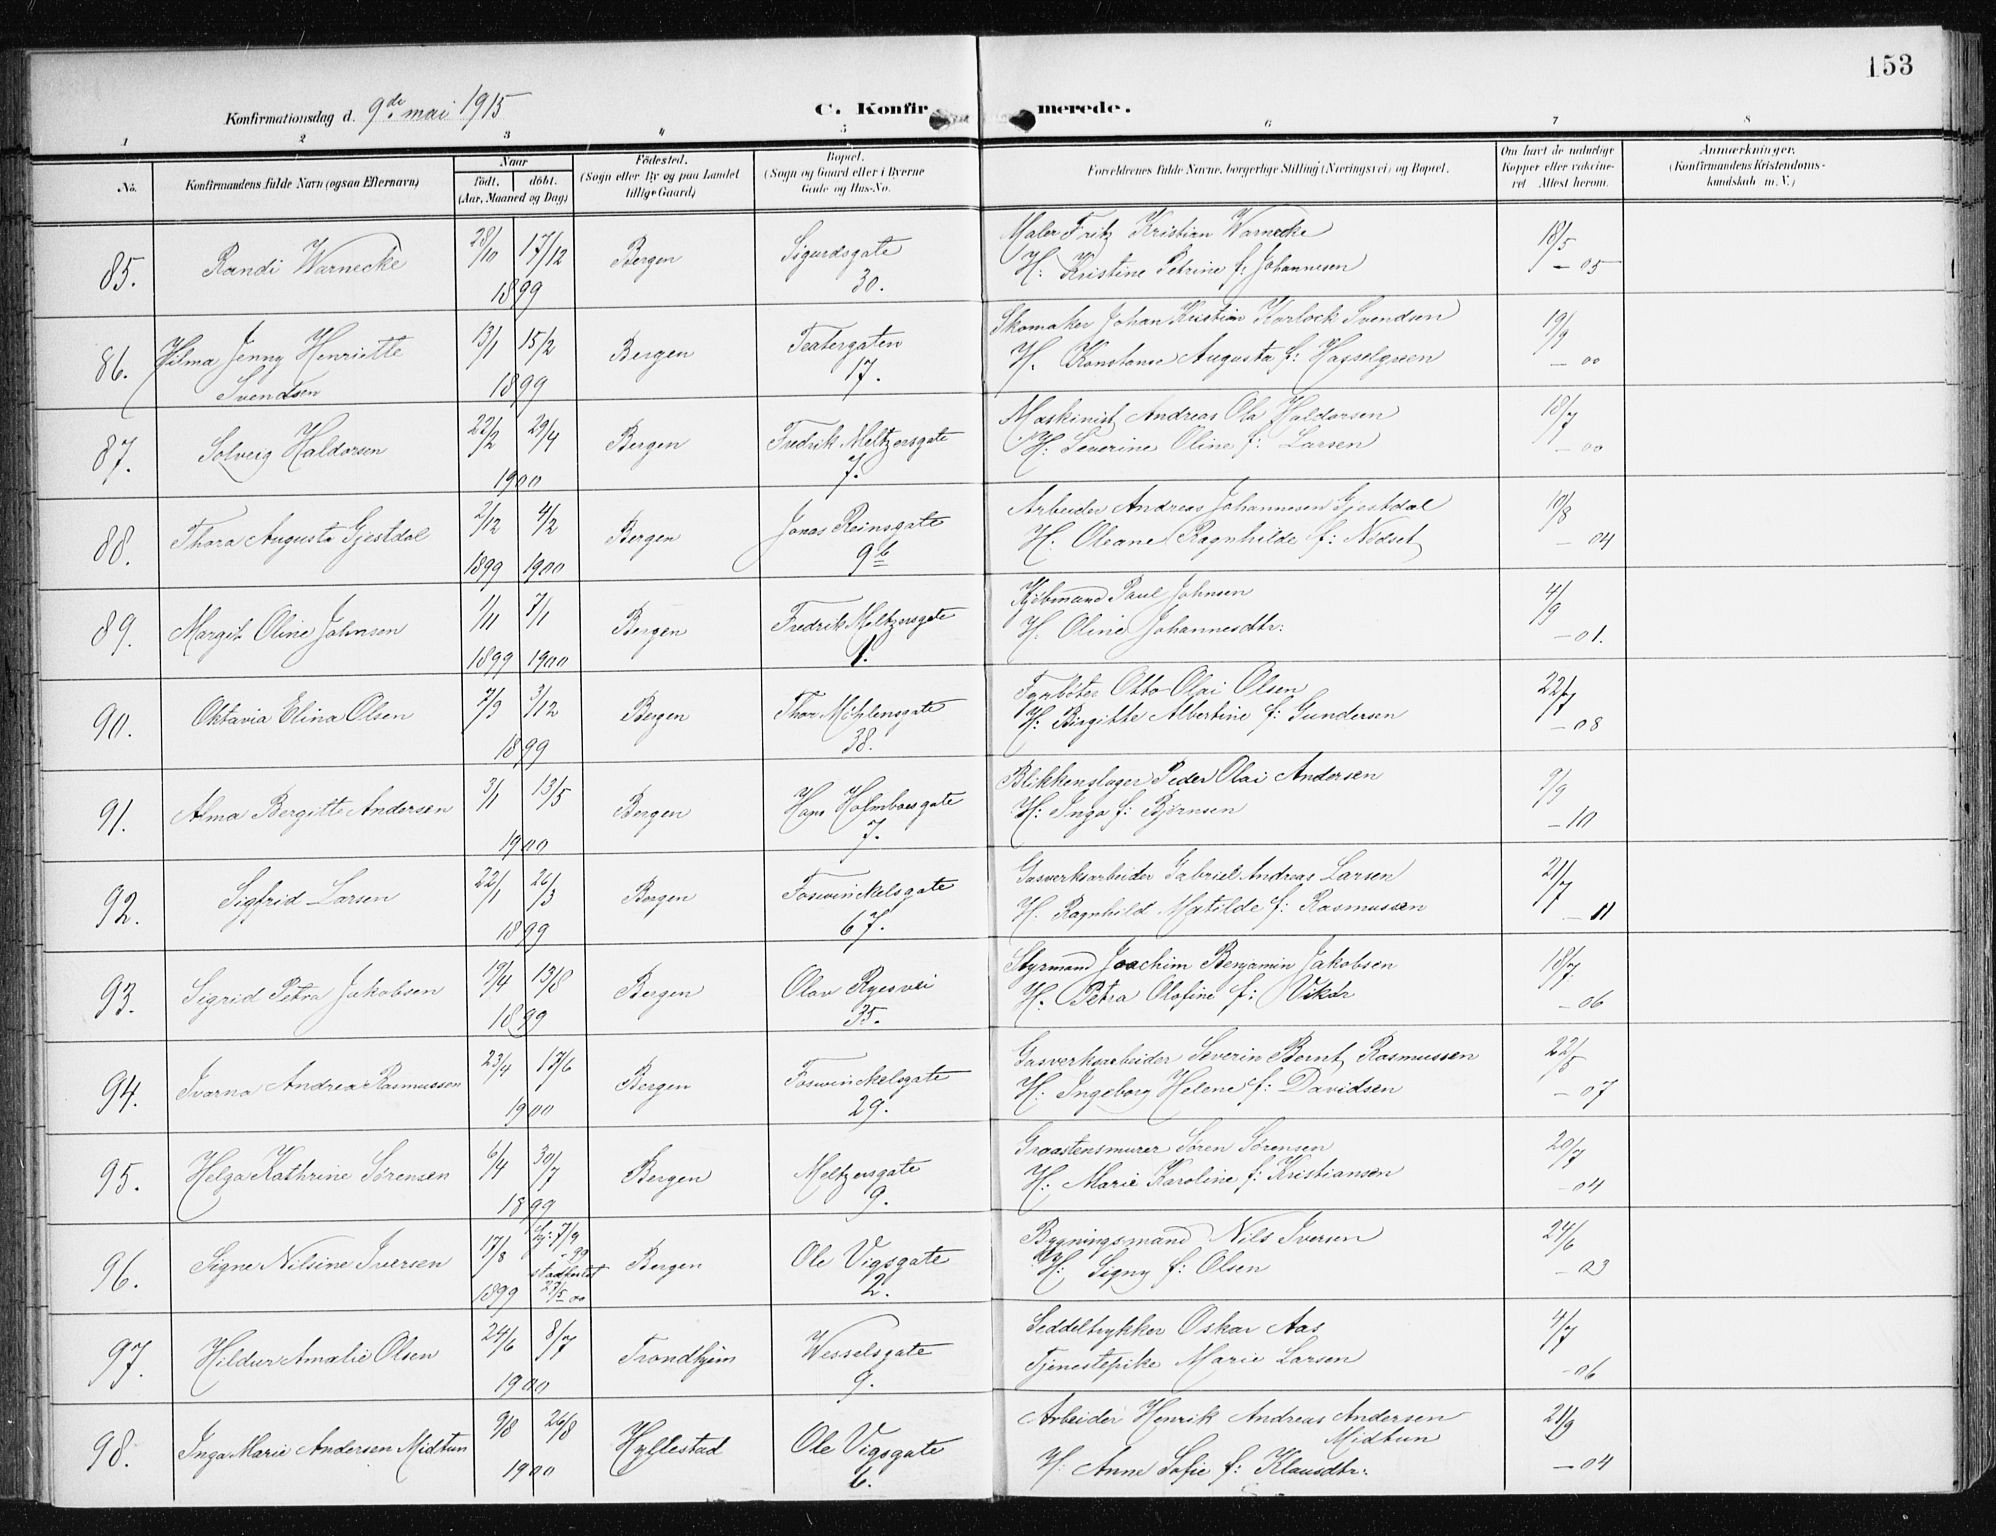 153
Konfirmationsdag d. 9de mai 1915
C. Konfirmerede.
1 2 3 4 5 6 7 8
No. Konfirmandens fulde Navn (ogsaa Efternavn)
Naar
født. døbt.
(Aar, Maaned og Dag)
Fødested.
(Sogn eller By og paa Landet
tillige Gaard)
Bopæl.
(Sogn og Gaard eller i Byerne
Gade og Hus-No.
Forældrenes fulde Navne, borgerlige Stilling (Næringsvei) og Bopæl.
Om havt de naturlige
Kopper eller vaccine-
ret Attest herom.
Anmærkninger.
(Konfirmandens Kristendoms-
kundskab m. V.)
85. Randi Warnecke 28/10 17/12 1899 Bergen Sigurdsgate 30.
Maler Fritz Kristian Warnecke
H: Kristine Petrine f: Johannesen
18/5 - 05
86. Hilma Jenny Henriette
Svendsen
13/1 15/2 1899 Bergen Teatergaten 17.
Skomaker Johan Kristian Korlock Svendsen
H. Konstanse Augusta f: Hasselgreen
19/9 - 00
87. Solveig Haldorsen 22/2 29/4 1900 Bergen Fredrik Meltzersgate 7.
Maskinist Andreas Ola Haldorsen
H: Severine Oline f: Larsen
18/7 - 00
88. Thora Augusta Gjestdal 2/12 1899 4/2 1900 Bergen Jonas Reinsgate 9b
Arbeider Andreas Johannesen Gjestdal
H: Oleane Ragnhilde f: Nødset
19/8 - 04
89. Margit Oline Johnsen 1/11 1899 7/1 1900 Bergen Fredrik Meltzersgate 1.
Kjøbmand Paul Johnsen
H. Oline Johannesdtr:
4/9 - 01.
90. Oktavia Elina Olsen 7/9 3/12 1899 Bergen Thor Møhlensgate 38.
Fyrbøter Otto Olai Olsen
H: Birgitte Albertine f: Gundersen
22/7 - 08
91. Alma Bergitte Andersen 3/1 13/5 1900 Bergen Hans Holmboesgate 7.
Blikkenslager Peder Olai Andersen
H: Inga f: Bjørnsen
9/9 - 10
92. Sigfrid Larsen 22/1 26/3 1899 Bergen Foswinckelsgate 67.
Gasverksarbeider Gabriel Andreas Larsen
H. Ragnhild Matilde f: Rasmussen
21/7 - 11
93. Sigrid Petra Jakobsen 19/4 13/8 1899 Bergen Olav Ryesvei 35.
Styrmand Joachim Benjamin Jakobsen
H. Petra Olafine f: Vikør
18/7. - 06
94. Ivarna Andrea Rasmussen 23/4 17/6 1900 Bergen Foswinckelsgate 29.
Gasverksarbeider Severin Bernt Rasmussen
H: Ingeborg Helene f: Davidsen
22/5 - 07
95. Helga Kathrine Sørensen 6/4 30/7 1899 Bergen Meltzersgate 9.
Graastensmurer Søren Sørensen
H: Marie Karoline f: Kristiansen
20/7 - 04
96. Signe Nilsine Iversen 17/8 1899 hj: 7/9 - 99 stadfestet 27/5 00 Bergen Ole Vigsgate 2.
Bygningsmand Nils Iversen
H: Signy f: Olsen
24/6 - 03
97. Hildur Amalie Olsen 24/6 8/7 1900 Trondhjem Wesselsgate 9.
Seddeltrykker Oskar Aas
Tjenestepike Marie Larsen
4/7 - 06
98. Inga Marie Andersen Midtun 9/8 26/8 1900 Hyllestad Ole Vigsgate 6.
Arbeider Henrik Andreas Andersen
Midtun
H: Anne Sofie f: Klausdtr:
21/9 - 04